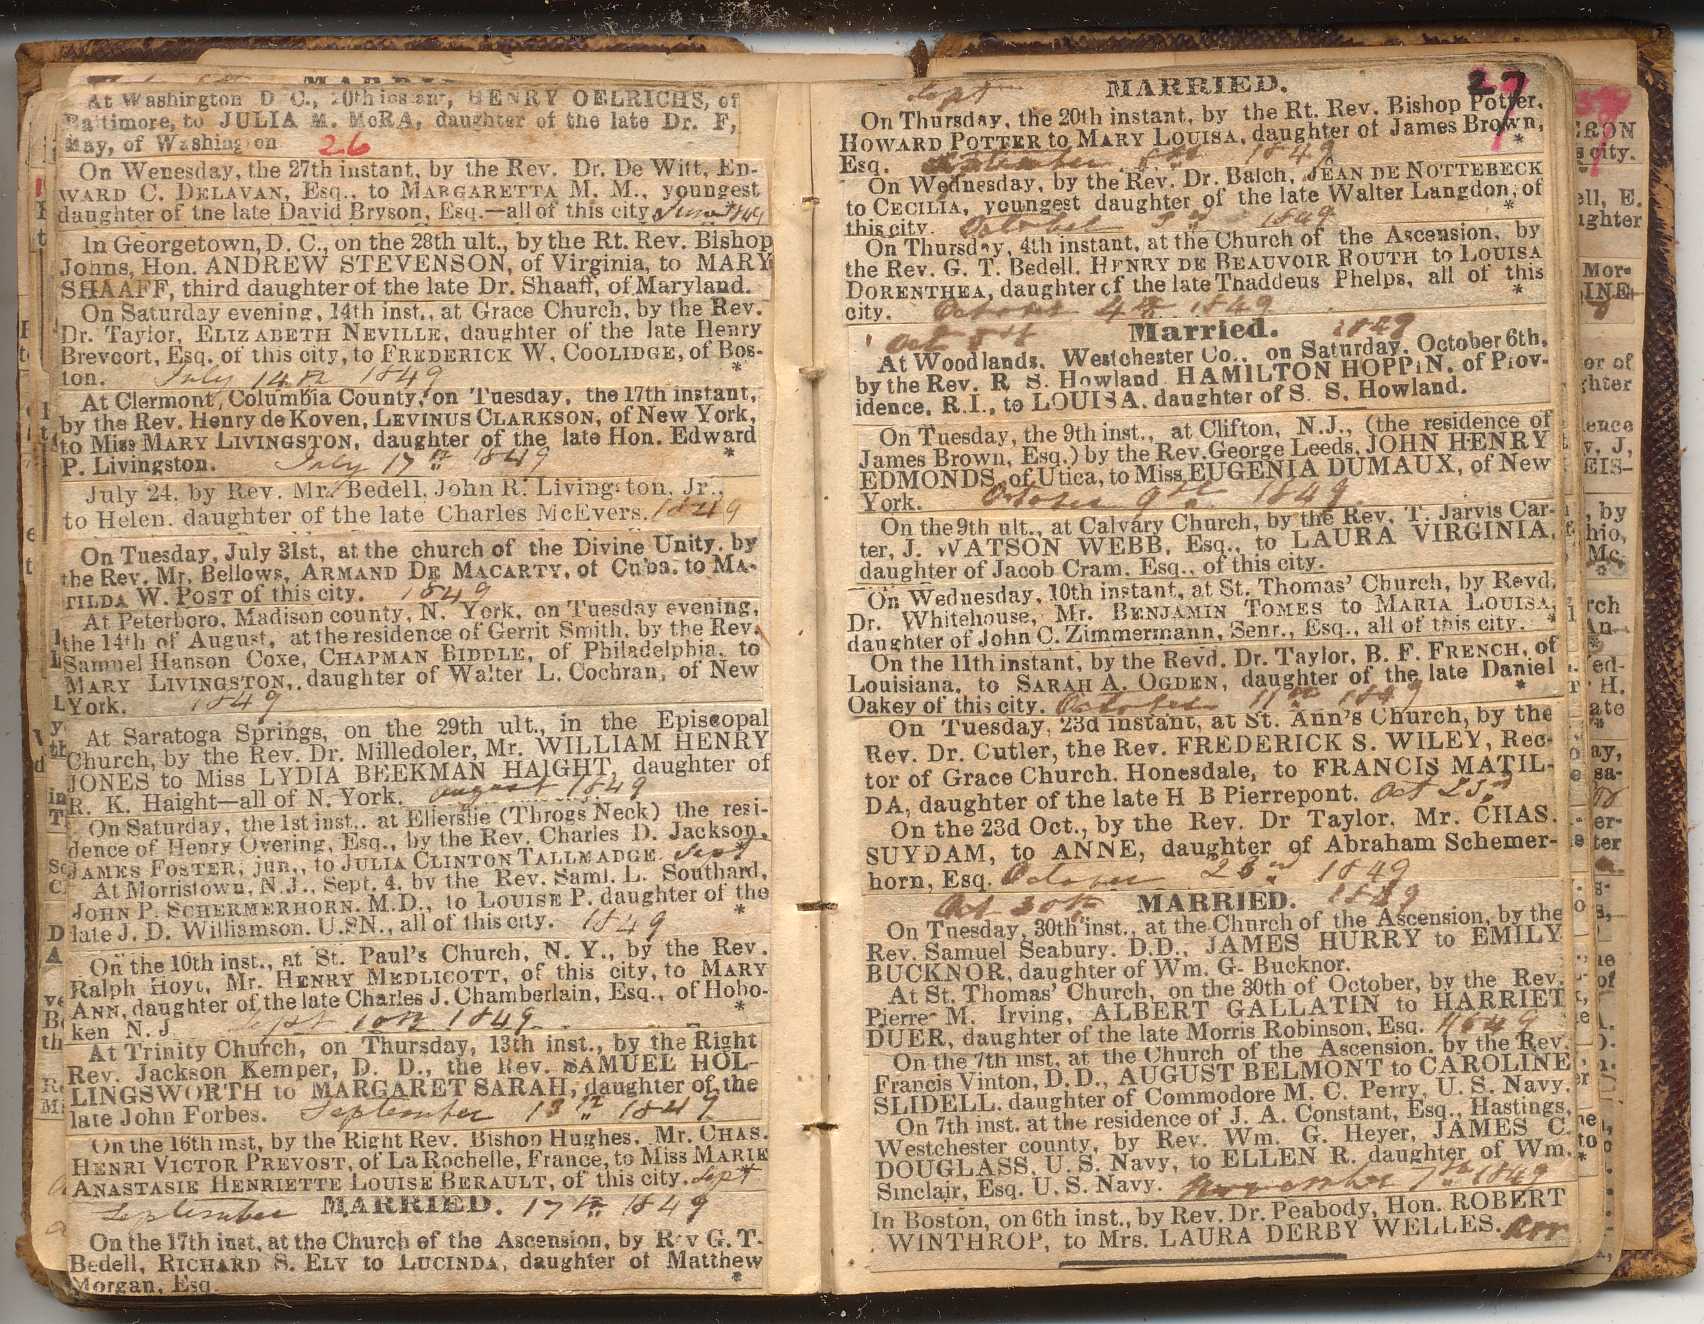 MARRIED.
At Washington D C., 20th instant, HENRY OELRICHS, of
Baltimore, to JULIA M. McRA, daughter of the late Dr. F,
May, of Washington
26
On Wenesday, the 27th instant, by the Rev. Dr. De Witt, ED-
WARD C. DELAVAN, Esq., to MARGARETTA M. M., youngest
daughter of the late David Bryson, Esq.—all of this city
In Georgetown, D. C., on the 28th ult., by the Rt. Rev. Bishop
Johns, Hon. ANDREW STEVENSON, of Virginia, to MARY
SHAAFF, third daughter of the late Dr. Shaaff, of Maryland.
On Saturday evening, 14th inst., at Grace Church, by the Rev.
Dr. Taylor, ELIZABETH NEVILLE, daughter of the late Henry
Brevoort, Esq. of this city, to FREDERICK W. COOLIDGE, of Bos-
ton. July 14th 1849 *
At Clermont, Columbia County, on Tuesday, the 17th instant,
by the Rev. Henry de Koven, LEVINUS CLARKSON, of New York,
to Miss MARY LIVINGSTON, daughter of the late Hon. Edward
P. Livingston. July 17th 1849 *
July 24, by Rev. Mr. Bedell, John R. Livingston, Jr.,
to Helen, daughter of the late Charles McEvers. 1849
On Tuesday, July 31st, at the church of the Divine Unity, by
the Rev. Mr. Bellows, ARMAND DE MACARTY, of Cuba, to MA-
TILDA W. POST of this city. 1849
At Peterboro, Madison county, N. York, on Tuesday evening,
the 14th of August, at the residence of Gerrit Smith, by the Rev.
Samuel Hanson Coxe, CHAPMAN BIDDLE, of Philadelphia, to
MARY LIVINGSTON, daughter of Walter L. Cochran, of New
York. 1849
At Saratoga Springs, on the 29th ult., in the Episcopal
Church, by the Rev. Dr. Milledoler, Mr. WILLIAM HENRY
JONES to Miss LYDIA BEEKMAN HAIGHT, daughter of
R. K. Haight—all of N. York. august 1849
On Saturday, the 1st inst., at Ellerslie (Throgs Neck) the resi-
dence of Henry Overing, Esq., by the Rev. Charles D. Jackson,
JAMES FOSTER, jun., to JULIA CLINTON TALLMADGE. Sept
At Morristown, N.J., Sept. 4, by the Rev. Saml. L. Southard,
JOHN P. SCHERMERHORN, M.D., to LOUISE P. daughter of the
late J. D. Williamson, U.SN., all of this city. 1849 *
On the 10th inst., at St. Paul's Church, N. Y., by the Rev.
Ralph Hoyt, Mr. HENRY MEDLICOTT, of this city, to MARY
ANN, daughter of the late Charles J. Chamberlain, Esq., of Hobo-
ken N. J Sept 10th 1849 *
At Trinity Church, on Thursday, 13th inst., by the Right
Rev. Jackson Kemper, D. D., the Rev. SAMUEL HOL-
LINGSWORTH to MARGARET SARAH, daughter of the
late John Forbes. September 13th 1849
On the 16th inst, by the Right Rev. Bishop Hughes, Mr. CHAS.
HENRI VICTOR PREVOST, of La Rochelle, France, to Miss MARIE
ANASTASIE HENRIETTE LOUISE BERAULT, of this city. Sept *
September MARRIED. 17th 1849
On the 17th inst, at the Church of the Ascension, by Rev G. T.
Bedell, RICHARD S. ELY to LUCINDA, daughter of Matthew
Morgan, Esq. *
27
Sept MARRIED.
On Thursday, the 20th instant, by the Rt. Rev. Bishop Potter,
HOWARD POTTER to MARY LOUISA, daughter of James Brown,
Esq. 1849 *
On Wednesday, by the Rev. Dr. Balch, JEAN DE NOTTEBECK
to CECILIA, youngest daughter of the late Walter Langdon, of
this city. October 3rd 1849 *
On Thursday, 4th instant, at the Church of the Ascension, by
the Rev. G. T. Bedell, HENRY DE BEAUVOIR ROUTH to LOUISA
DORENTHEA, daughter of the late Thaddeus Phelps, all of this
city. October 4th 1849 *
Oct Married. 1849
At Woodlands, Westchester Co., on Saturday, October 6th,
by the Rev. R S. Howland HAMILTON HOPPIN, of Prov-
idence, R.I., to LOUISA, daughter of S. S. Howland.
On Tuesday, the 9th inst., at Clifton, N.J., (the residence of
James Brown, Esq.) by the Rev. George Leeds, JOHN HENRY
EDMONDS, of Utica, to Miss EUGENIA DUMAUX, of New
York. October 9th 1849
On the 9th ult., at Calvary Church, by the Rev. T. Jarvis Car-
ter, J. WATSON WEBB, Esq., to LAURA VIRGINIA,
daughter of Jacob Cram, Esq., of this city.
On Wednesday, 10th instant, at St. Thomas' Church, by Revd.
Dr. Whitehouse, Mr. BENJAMIN TOMES to MARIA LOUISA,
daughter of John C. Zimmermann, Senr., Esq., all of this city. *
On the 11th instant, by the Revd. Dr. Taylor, B. F. FRENCH, of
Louisiana, to SARAH A. OGDEN, daughter of the late Daniel
Oakey of this city. October 11th 1849 *
On Tuesday, 23d instant, at St. Ann's Church, by the
Rev. Dr. Cutler, the Rev. FREDERICK S. WILEY, Rec-
tor of Grace Church, Honesdale, to FRANCIS MATIL-
DA, daughter of the late H B Pierrepont. Oct 23rd
On the 23d Oct., by the Rev. Dr Taylor, Mr. CHAS.
SUYDAM, to ANNE, daughter of Abraham Schemer-
horn, Esq. October 23rd 1849
Oct 30th MARRIED. 1849
On Tuesday, 30th inst., at the Church of the Ascension, by the
Rev. Samuel Seabury, D.D., JAMES HURRY to EMILY
BUCKNOR, daughter of Wm. G. Bucknor.
At St. Thomas' Church, on the 30th of October, by the Rev.
Pierre M. Irving, ALBERT GALLATIN to HARRIET
DUER, daughter of the late Morris Robinson, Esq.
On the 7th inst, at the Church of the Ascension, by the Rev.
Francis Vinton, D.D., AUGUST BELMONT to CAROLINE
SLIDELL, daughter of Commodore M. C. Perry, U. S. Navy.
On 7th inst. at the residence of J. A. Constant, Esq., Hastings,
Westchester county, by Rev. Wm. G. Heyer, JAMES C.
DOUGLASS, U. S. Navy, to ELLEN R. daughter of Wm.
Sinclair, Esq. U. S. Navy. November 7th 1849
In Boston, on 6th inst., by Rev. Dr. Peabody, Hon. ROBERT
WINTHROP, to Mrs. LAURA DERBY WELLES. Nov